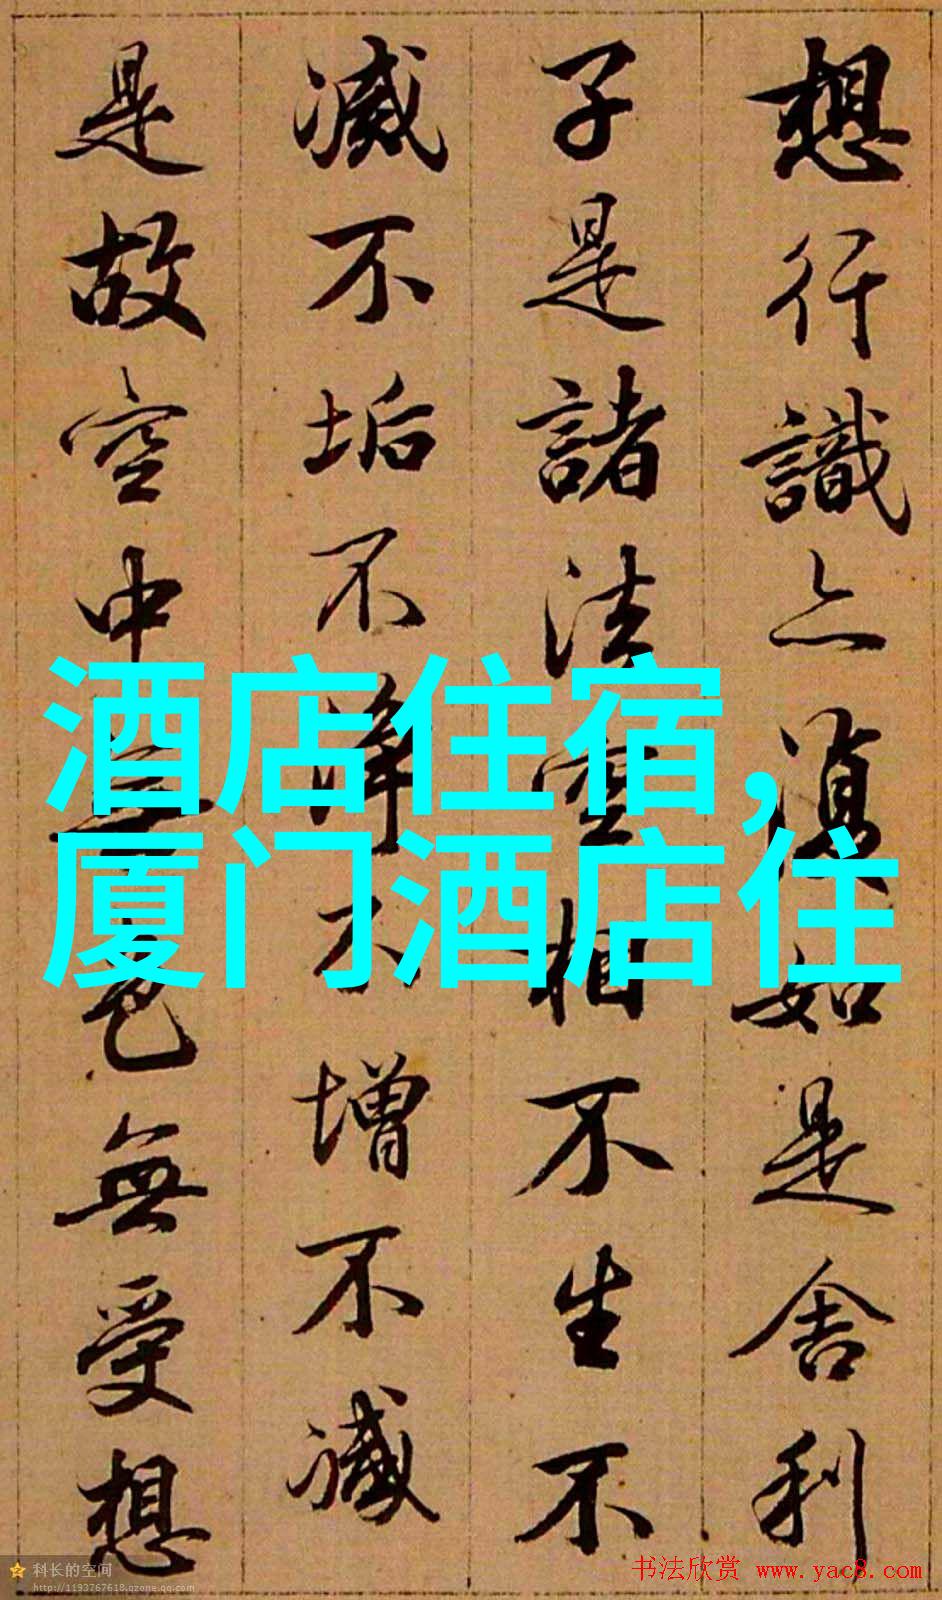 想行識亦復如是舍利
子是諸法空相不生不
滅不垢不淨不增不減
是故空中無色無受想
酒店住宿,
厦门酒店住
科长的空间
http://1193767618.qzone.qq.com
书法欣赏 www.yac8.com